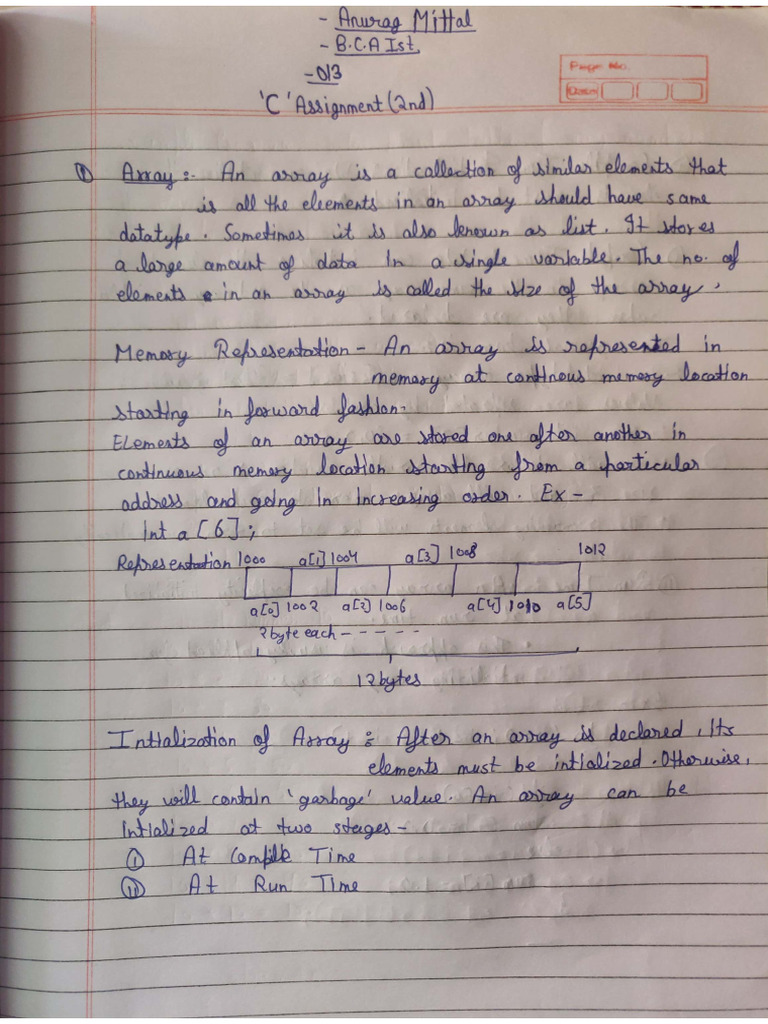 - Anurag Mittal
- B.C.A Ist.
- 013
'C' Assignment (2nd)
Page No.
Date
① Array :- An array is a collection of similar elements that
is all the eleements in an array should have same
datatype. Sometimes it is also known as list. It stores
a large amount of data in a single variable. The no. of
elements in an array is called the size of the array.
Memory Representation - An array is represented in
memory at continous memory location
starting in forward fashion.
Elements of an array are stored one after another in
continuous memory location starting from a particular
address and going in increasing order. Ex -
int a[6];
Representation 1000 a[1] 1004 a[3] 1008 1012
a[0] 1002 a[2] 1006 a[4] 1010 a[5]
2 byte each - - - - - -
12 bytes
Intialization of Array :- After an array is declared, its
elements must be intialized. Otherwise,
they will contain 'garbage' value. An array can be
intialized at two stages -
① At Compile Time
⑪ At Run Time